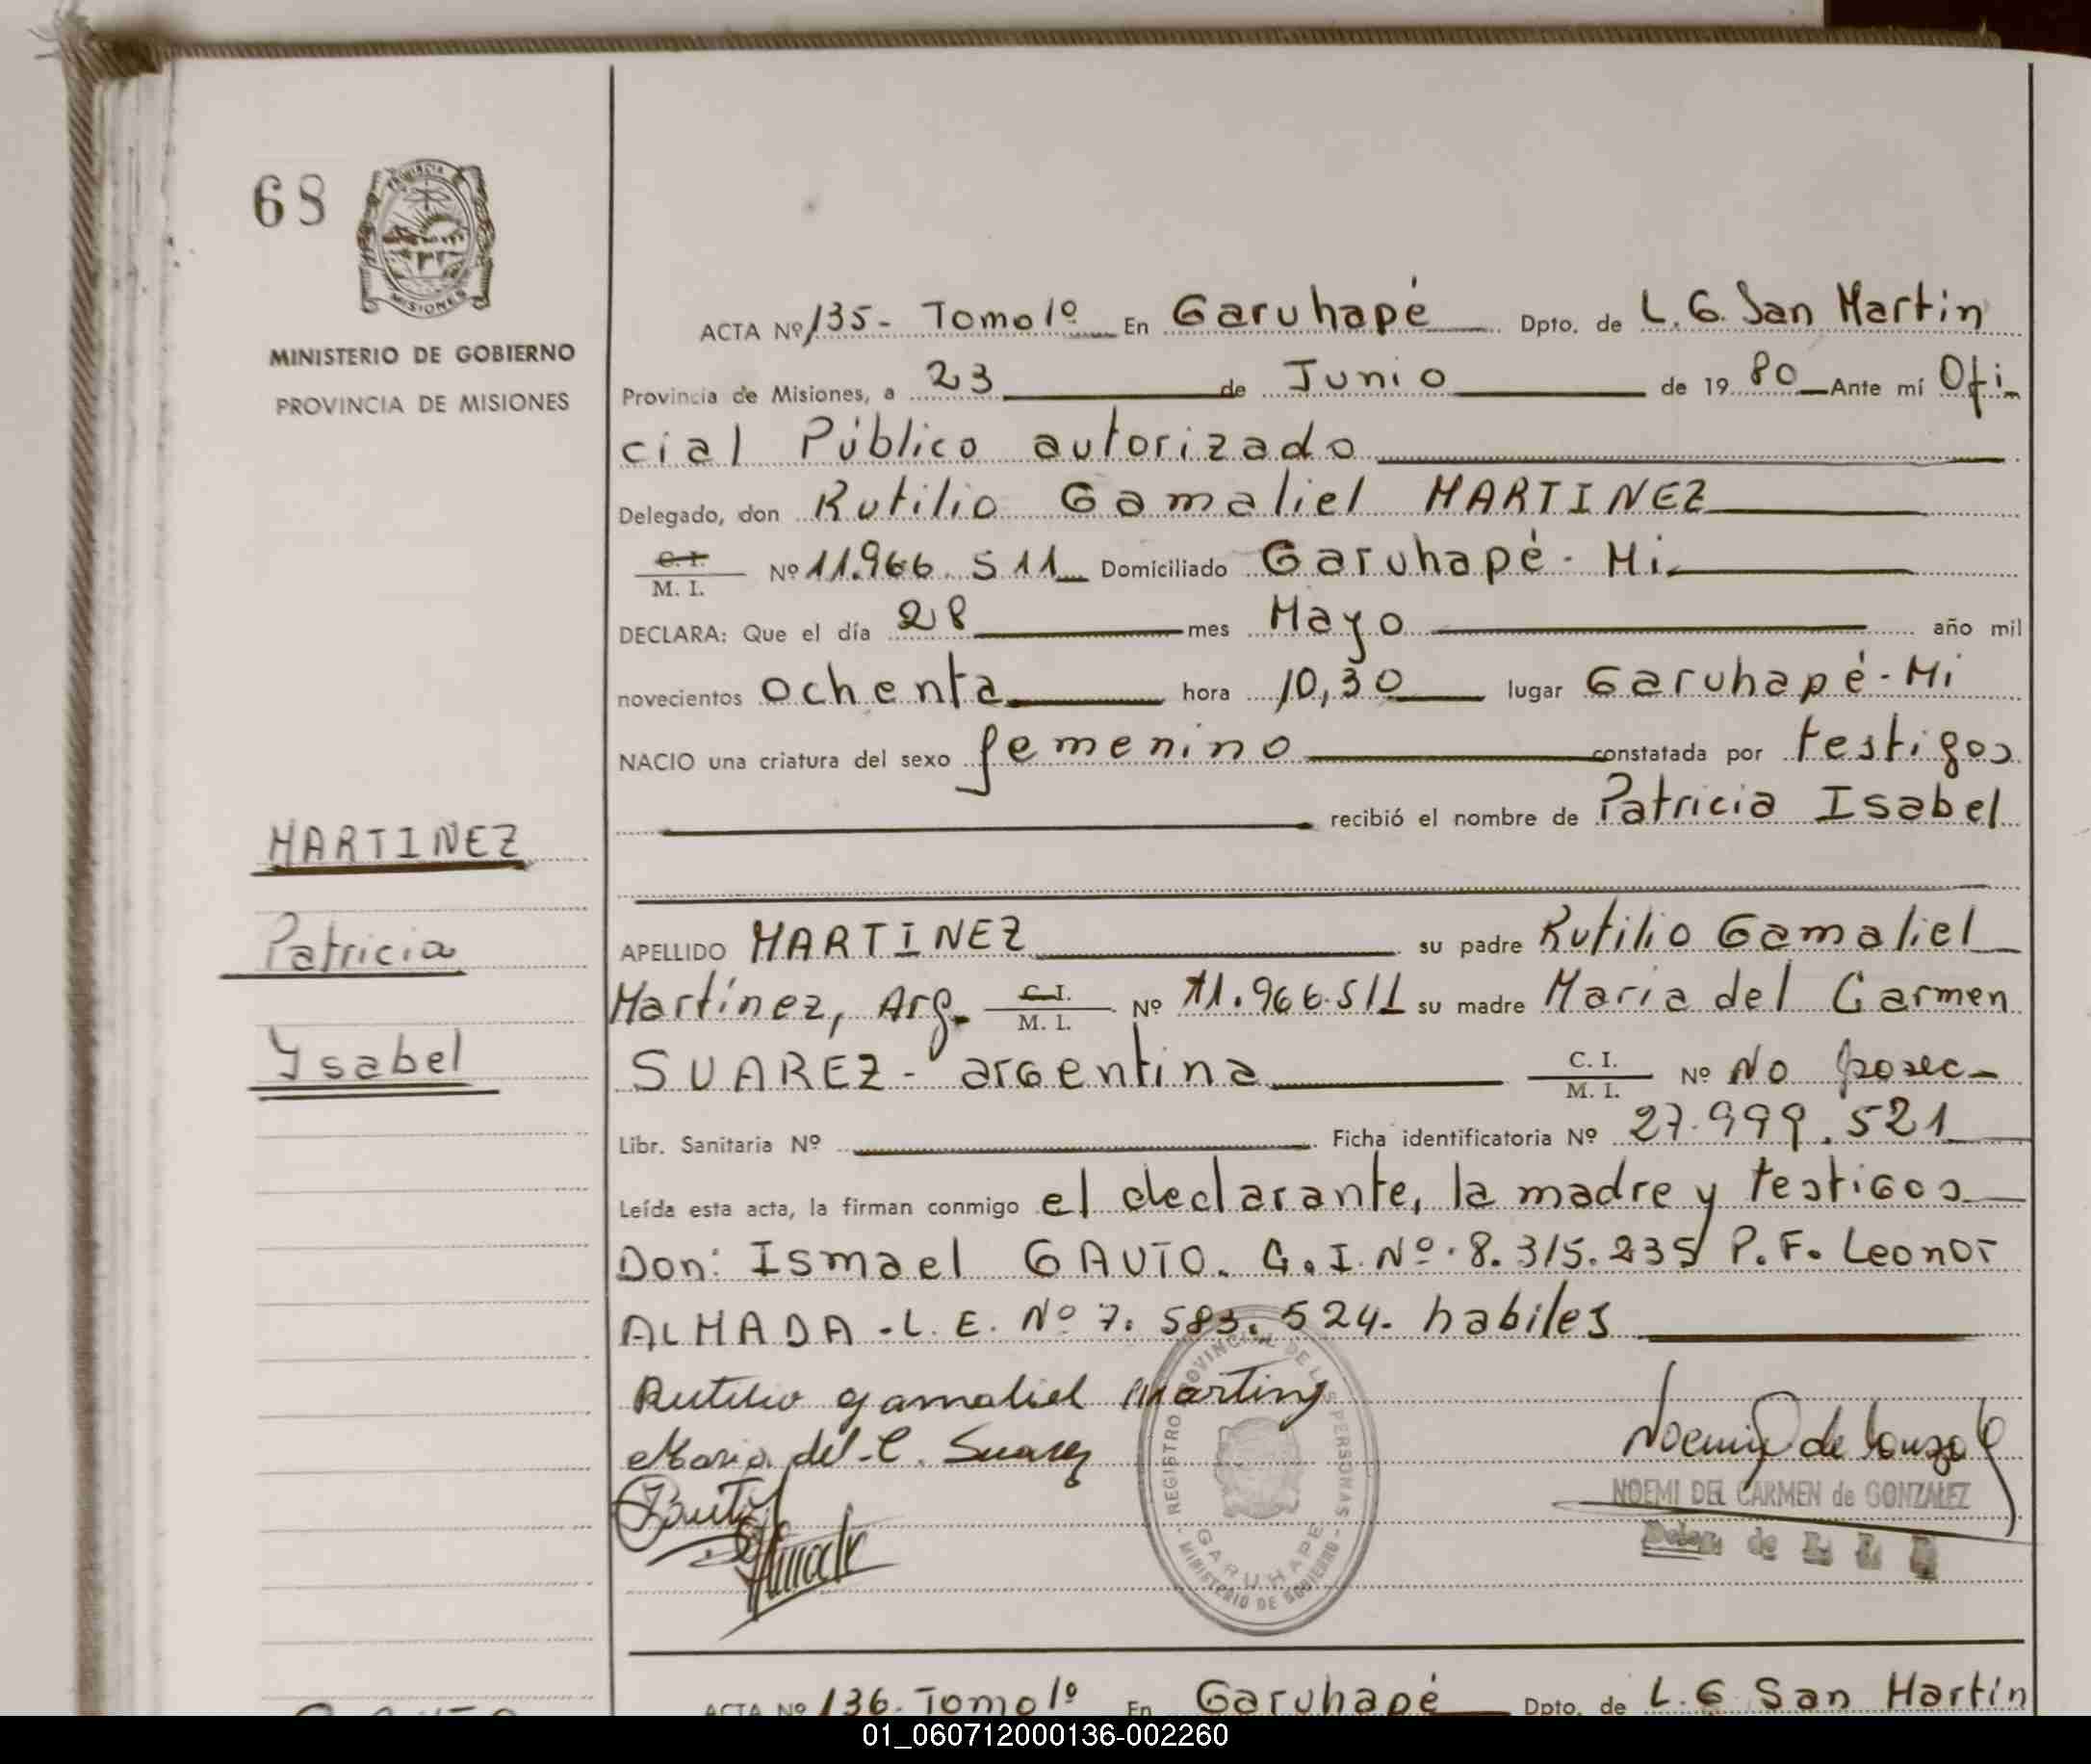 68
PROVINCIA
MISIONES
MINISTERIO DE GOBIERNO
PROVINCIA DE MISIONES
MARTINEZ
Patricia
Ysabel
ACTA Nº 135- Tomo 1º En Garuhapé Dpto. de L.G. San Martin
Provincia de Misiones, a 23 de Junio de 19 80 Ante mí Ofi
cial Público autorizado
Delegado, don Rutilio Gamaliel MARTINEZ
C. I. / M. I. Nº 11.966.511 Domiciliado Garuhapé - Mi
DECLARA: Que el día 28 mes Mayo año mil
novecientos ochenta hora 10,30 lugar Garuhapé - Mi
NACIO una criatura del sexo femenino constatada por testigos
recibió el nombre de Patricia Isabel
APELLIDO MARTINEZ su padre Rutilio Gamaliel
Martínez, Arg. C. I. / M. I. Nº 11.966.511 su madre Maria del Carmen
SUAREZ - argentina C. I. / M. I. Nº No posee
Libr. Sanitaria Nº Ficha identificatoria Nº 27.999.521
Leída esta acta, la firman conmigo el declarante, la madre y testigos
Don: Ismael GAUTO. C.I. Nº 8.315.235 P.F. Leonor
ALMADA - L. E. Nº 7. 583. 524. habiles
Rutilio gamaliel Martinez
Maria del C. Suarez
REGISTRO PROVINCIAL DE LAS PERSONAS - MINISTERIO DE GOBIERNO -
GARUHAPE
Noemi de Gonzalez
NOEMI DEL CARMEN de GONZALEZ
ACTA Nº 136. Tomo 1º En Garuhapé Dpto. de L.G San Martín
01_060712000136-002260